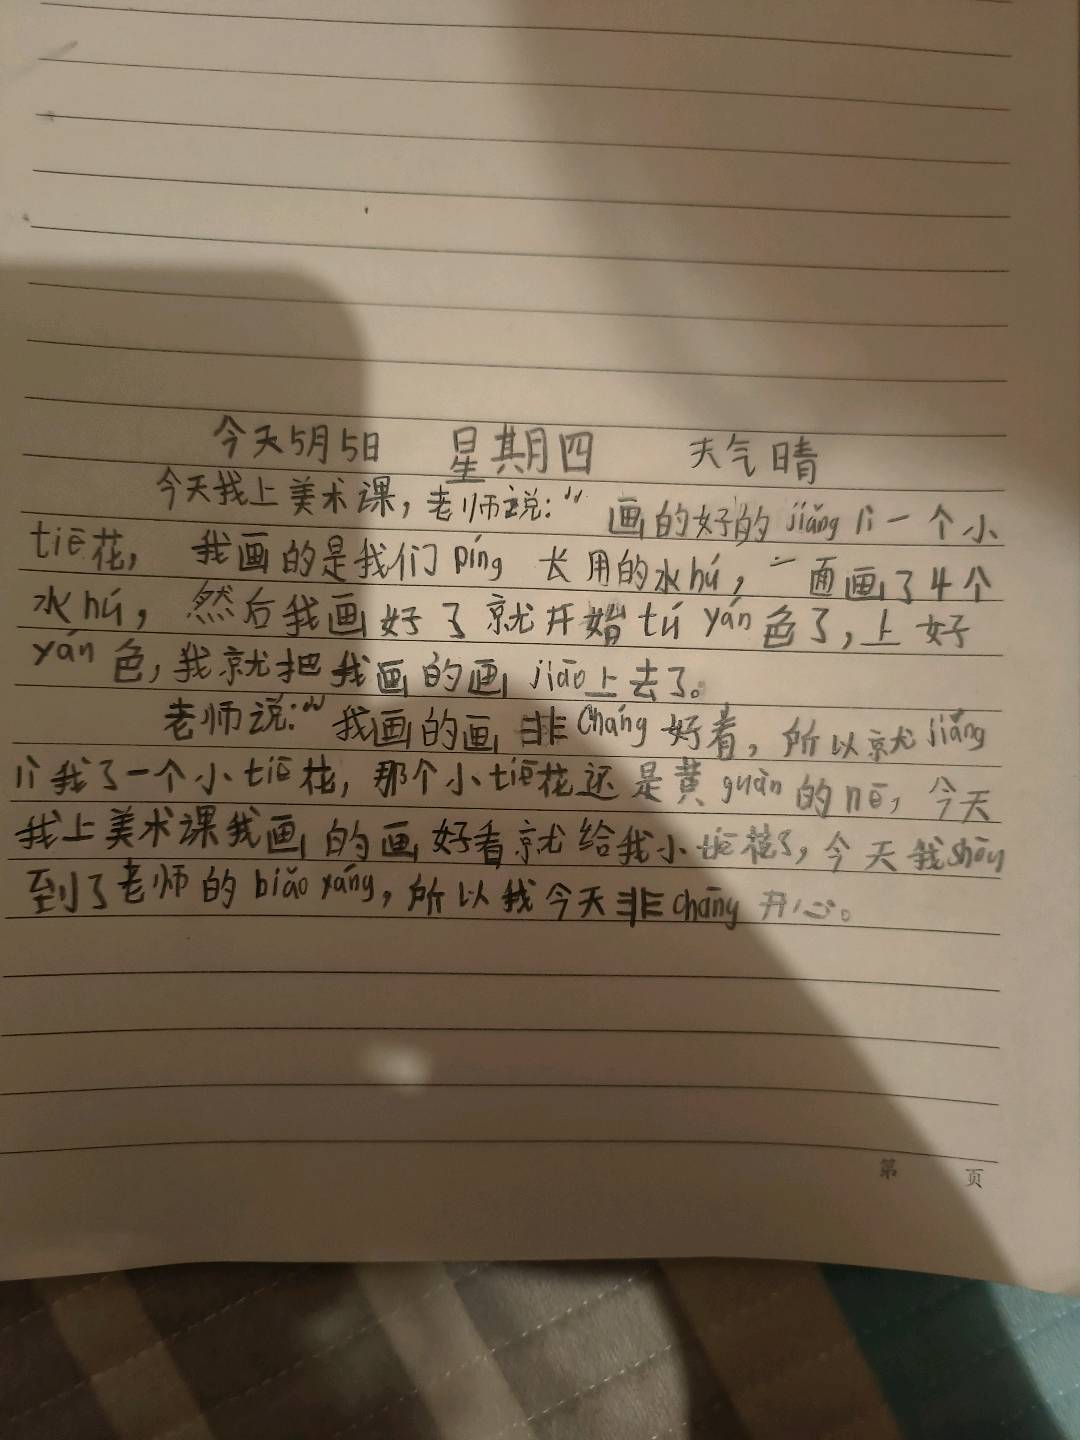 今天5月5日 星期四 天气晴
今天我上美术课,老师说:“画的好的jiǎng lì一个小
tiē花, 我画的是我们píng 长用的水hú,一面画了4个
水hú, 然后我画好了就开始tú yán色了,上好
yán色,我就把我画的画jiāo上去了。
老师说:“我画的画非cháng好看,所以就jiǎng
lì我了一个小tiē花,那个小tiē花还是黄guàn的nē,今天
我上美术课我画的画好看就给我小tiē花了,今天我shōu
到了老师的biǎo yáng,所以我今天非cháng开心。
第 页